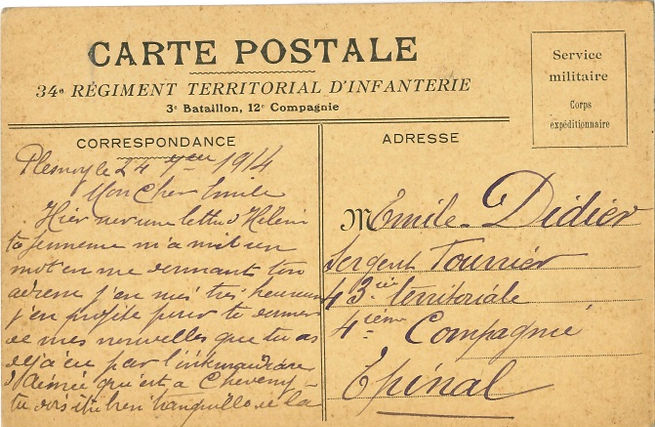 CARTE POSTALE
34e RÉGIMENT TERRITORIAL D'INFANTERIE
3e Bataillon, 12e Compagnie
Service
militaire
Corps
expéditionnaire
CORRESPONDANCE
Plesnoy le 24 7bre 1914
Mon Cher Emile
Hier une lettre d'Helene
ta femme m'a mit un
mot en me donnant ton
adresse j'en suis très heureux
j'en profite pour te donner
de mes nouvelles que tu as
deja eu par
Aimée qui est a Cheveny
tu dois être bien tranquille de la
ADRESSE
M Emile Didier
Sergent Fourrier
43eme territoriale
4ième Compagnie
Epinal